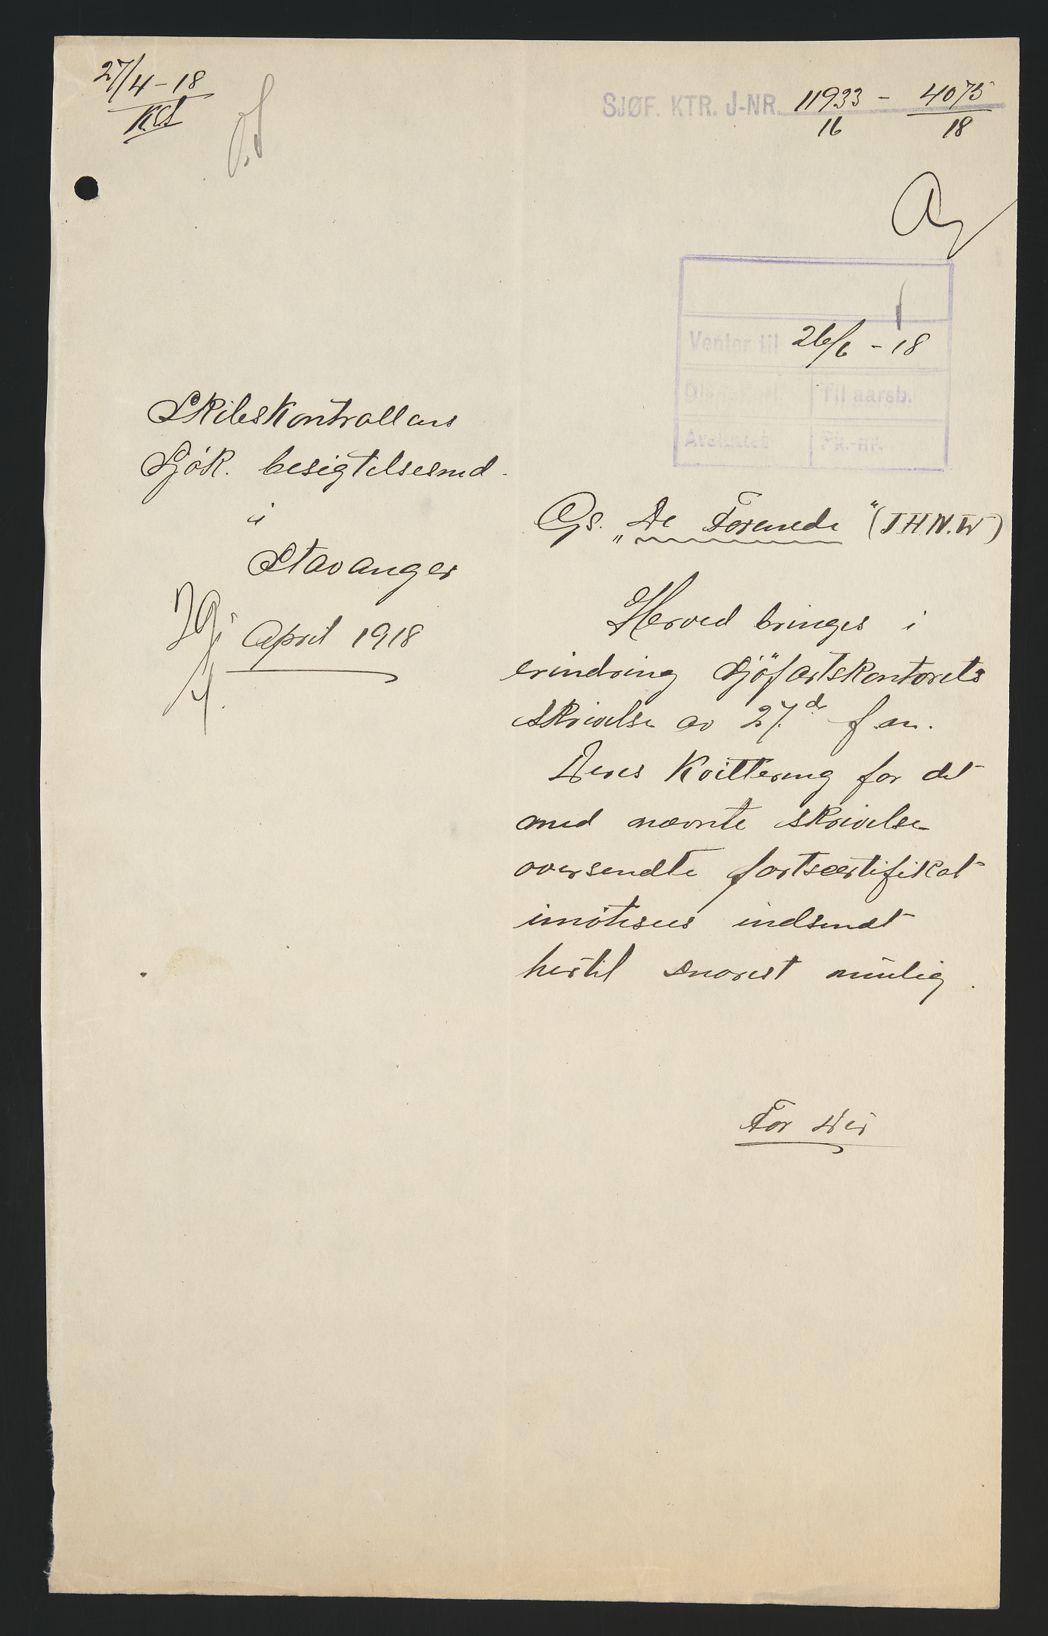 27/4-18
SJØF. KTR. J-NR. 11933/16 - 4075/18
Venter til 26/6 - 18
Til aarsb.
Skibskontrollens
Sjøk. besigtelsesmd.
i
Stavanger
29/4.
April 1918
Gs. „De Forenede" (THN.W)
Herved bringes i
erindring Sjöfartskontorets
skrivelse av 27.de f.m.
Deres Kvittering for det
med nævnte skrivelse
oversendte fartscertifikat
imötesees indsendt
hertil snarest mulig.
For Dir